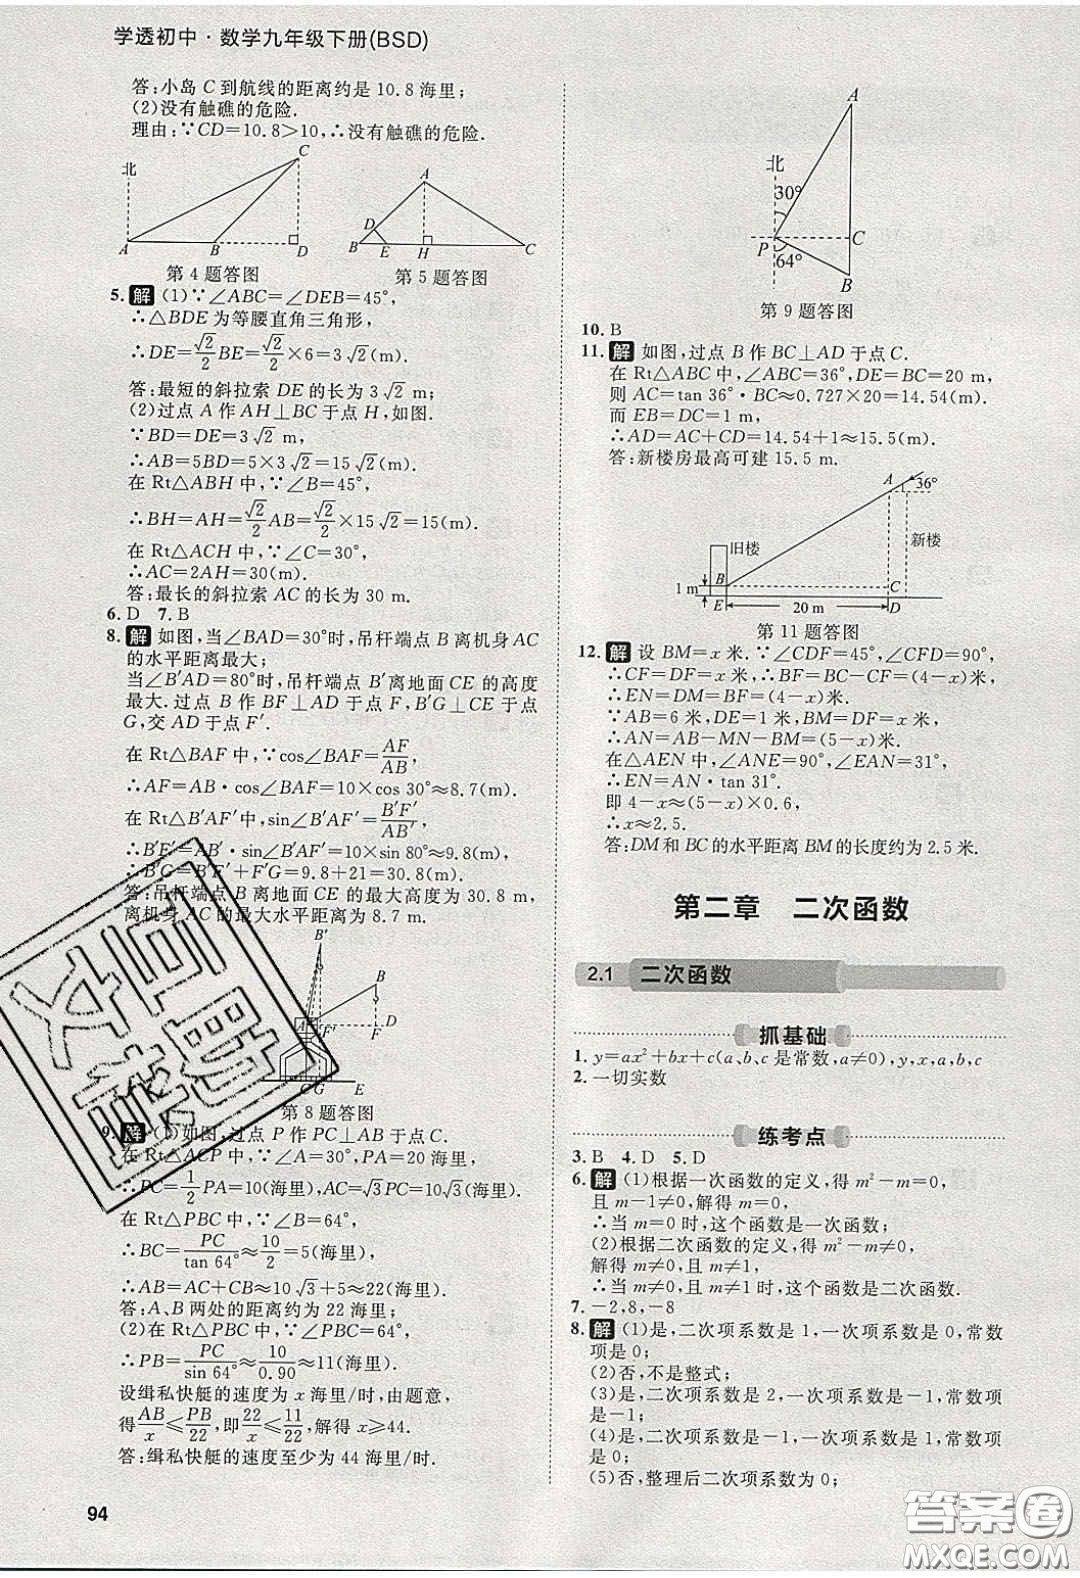 学透初中·数学九年级下册(BSD)
答:小岛 C 到航线的距离约是 10.8 海里;
(2)没有触礁的危险.
理由:∵CD=10.8>10,∴没有触礁的危险.
北
C
A
B
D
第 4 题答图
A
D
B
E
H
C
第 5 题答图
5. 解 (1)∵∠ABC=∠DEB=45°,
∴△BDE 为等腰直角三角形,
∴DE=√2/2BE=√2/2×6=3√2(m).
答:最短的斜拉索 DE 的长为 3√2 m;
(2)过点 A 作 AH⊥BC 于点 H,如图.
∵BD=DE=3√2 m,
∴AB=5BD=5×3√2=15√2(m).
在 Rt△ABH 中,∵∠B=45°,
∴BH=AH=√2/2AB=√2/2×15√2=15(m).
在 Rt△ACH 中,∵∠C=30°,
∴AC=2AH=30(m).
答:最长的斜拉索 AC 的长为 30 m.
6. D 7. B
8. 解 如图,当∠BAD=30°时,吊杆端点 B 离机身 AC
的水平距离最大;
当∠B′AD=80°时,吊杆端点 B′离地面 CE 的高度
最大.过点 B 作 BF⊥AD 于点 F,B′G⊥CE 于点
G,交 AD 于点 F′.
在 Rt△BAF 中,∵cos∠BAF=AF/AB,
∴AF=AB·cos∠BAF=10×cos 30°≈8.7(m).
在 Rt△B′AF′中,sin∠B′AF′=B′F′/AB′,
∴B′F′=AB′·sin∠B′AF′=10×sin 80°≈9.8(m).
∴B′G=B′F′+F′G=9.8+21=30.8(m).
答:吊杆端点 B 离地面 CE 的最大高度为 30.8 m,
离机身 AC 的最大水平距离为 8.7 m.
B′
B
A
F′
F
D
C
G
E
第 8 题答图
9. 解 (1)如图,过点 P 作 PC⊥AB 于点 C.
在 Rt△ACP 中,∵∠A=30°,PA=20 海里,
∴PC=1/2PA=10(海里),AC=√3PC=10√3(海里).
在 Rt△PBC 中,∵∠B=64°,
∴BC=PC/tan 64°≈10/2=5(海里).
∴AB=AC+CB≈10√3+5≈22(海里).
答:A、B 两处的距离约为 22 海里;
(2)在 Rt△PBC 中,∵∠B=64°,
∴PB=PC/sin 64°≈10/0.90≈11(海里).
设缉私快艇的速度为 x 海里/时,由题意,
得AB/x≤PB/22,即22/x≤11/22,解得 x≥44.
答:缉私快艇的速度至少为 44 海里/时.
94
A
北
30°
P
C
64°
B
第 9 题答图
10. B
11. 解 如图,过点 B 作 BC⊥AD 于点 C.
在 Rt△ABC 中,∠ABC=36°,DE=BC=20 m,
则 AC=tan 36°·BC≈0.727×20=14.54(m).
而 EB=DC=1 m,
∴AD=AC+CD=14.54+1≈15.5(m).
答:新楼房最高可建 15.5 m.
A
36°
旧楼
新楼
1 m
B
C
E
20 m
D
第 11 题答图
12. 解 设 BM=x 米.∵∠CDF=45°,∠CFD=90°,
∴CF=DF=x 米,∴BF=BC-CF=(4-x)米.
∴EN=DM=BF=(4-x)米.
∵AB=6 米,DE=1 米,BM=DF=x 米,
∴AN=AB-MN-BM=(5-x)米.
在△AEN 中,∠ANE=90°,∠EAN=31°,
∴EN=AN·tan 31°.
即 4-x≈(5-x)×0.6,
∴x≈2.5.
答:DM 和 BC 的水平距离 BM 的长度约为 2.5 米.
第二章 二次函数
2.1 二次函数
抓基础
1. y=ax²+bx+c(a、b、c 是常数,a≠0),y,x,a,b,c
2. 一切实数
练考点
3. B 4. D 5. D
6. 解 (1)根据一次函数的定义,得 m²-m=0,
且 m-1≠0,解得 m=0.
∴当 m=0 时,这个函数是一次函数;
(2)根据二次函数的定义,得 m²-m≠0,
解得 m≠0,且 m≠1,
∴当 m≠0,且 m≠1 时,这个函数是二次函数.
7. -2,8,-8
8. 解 (1)是,二次项系数是 1,一次项系数是 0,常数
项是 0;
(2)否,不是整式;
(3)是,二次项系数是 2,一次项系数是-1,常数项
是-1;
(4)是,二次项系数是-1,一次项系数是 1,常数项
是 0;
(5)否,整理后二次项系数为 0;
答案圈
MXQE.COM